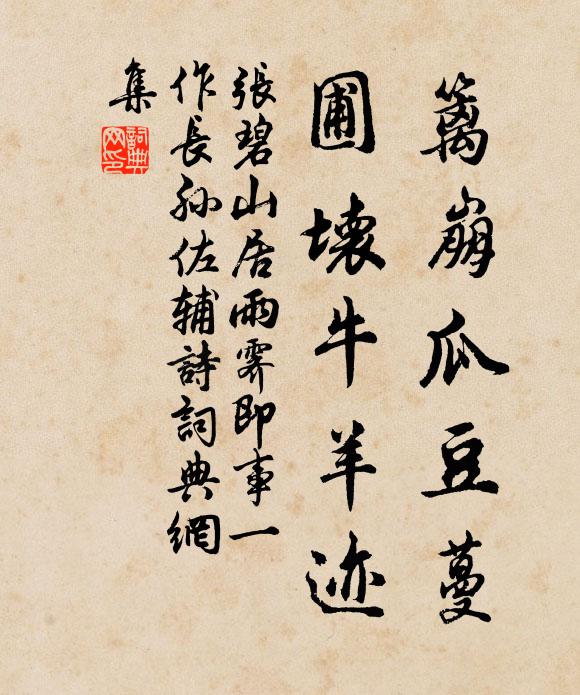 篱崩瓜豆蔓
圃壞牛羊迹
張碧山居雨霽即事一
作長孙佐辅詩詞典網
集
詞典
网印